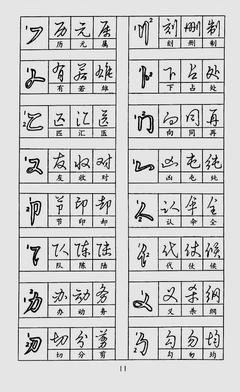 历 元 属
历 元 属
有 若 雄
有 若 雄
区 汇 医
匹 汇 医
友 收 对
友 收 对
节 印 却
节 印 却
队 陈 陆
队 陈 陆
办 动 务
办 动 务
切 分 剪
切 分 剪
刻 删 制
刻 删 制
下 占 处
下 占 处
向 同 再
向 同 再
凶 屯 纯
凶 屯 纯
认 伞 全
认 伞 全
代 仗 候
代 仗 候
又 杀 纲
又 杀 纲
勾 勿 均
勾 勿 均
11